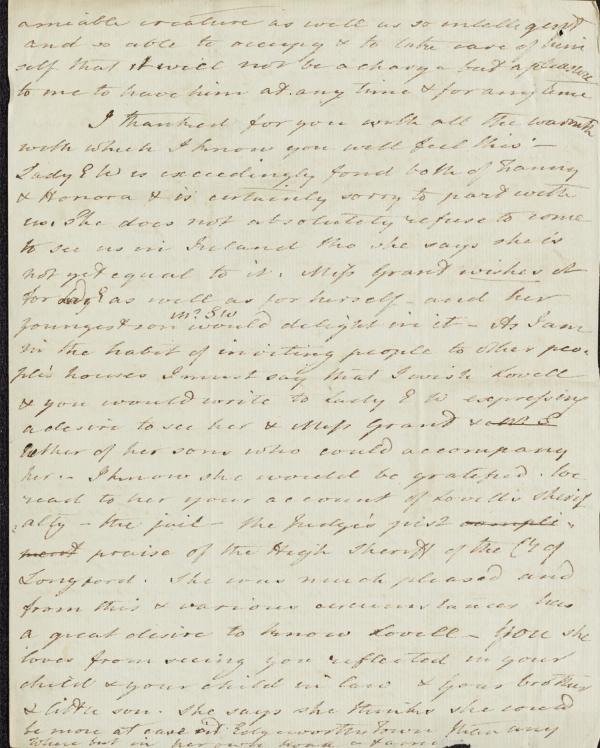 amiable creature as well as so intelligent
and so able to occupy & to take care of him
self that it will not be a charge but a pleasure
to me to have him at any time & for any time
I thanked for you with all the warmth
with which I know you will feel this –
Lady E W is exceedingly fond both of Fanny
& Honora & is certainly sorry to part with
us. She does not absolutely refuse to come
to see us in Ireland tho she says she is
not yet equal to it. Miss Grant wishes it
for Lady E as well as for herself – and her
youngest son would delight in it – As I am
Mr. SW
in the habit of inviting people to other peo-
ple's houses I must say that I wish Lovell
& you would write to Lady E W expressing
a desire to see her & Miss Grant &
either of her sons who could accompany
her. – I know she would be gratified. We
read to her your account of Lovell's Sherif
alty – the jail – the Judge's just compli-
ment praise of the High Sheriff of the Cy of
Longford. She was much pleased and
from this & various circumstances has
a great desire to know Lovell – You she
loves from seeing you reflected in your
child & your child in law & your brother
& little son. She says she thinks she could
be more at ease at Edgeworthstown than any
where but in her own home